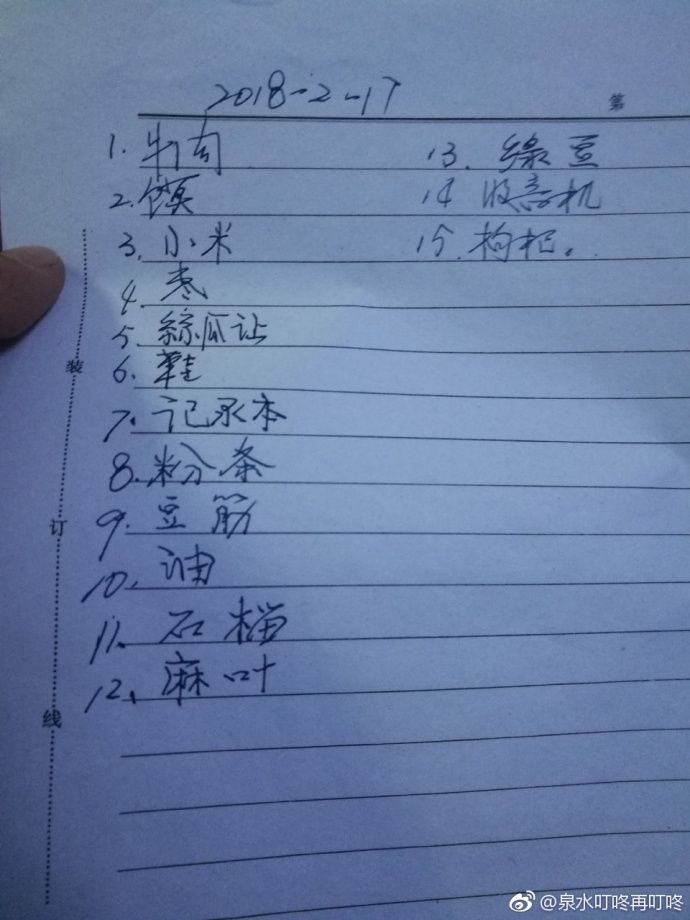 2018-2-17
第
1. 牛肉
2. 馍
3. 小米
4. 枣
5. 丝瓜让
6. 鞋
7. 记录本
8. 粉条
9. 豆筋
10. 油
11. 石榴
12. 麻叶
13. 绿豆
14 收音机
15. 枸杞。
装
订
线
@泉水叮咚再叮咚